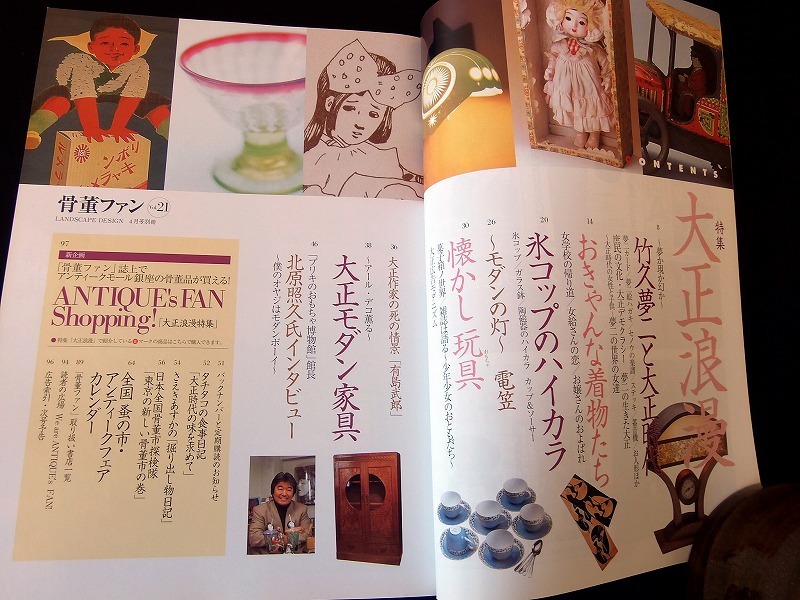 CONTENTS
特集
大正浪漫
8
〜夢か現か幻か〜
竹久夢二と大正時代
14
おきゃんな着物たち
女学校の帰り道/女給さんの恋/お嬢さんのおよばれ
20
氷コップのハイカラ
氷コップ/ガラス鉢 陶磁器のハイカラ カップ&ソーサー
26
〜モダンの灯〜 電笠
30
懐かし玩具
36
大正作家の死の情景「有島武郎」
38
〜アール・デコ薫る〜
大正モダン家具
46
「ブリキのおもちゃ博物館」館長
北原照久氏インタビュー
〜僕のオヤジはモダンボーイ〜
骨董ファン Vol.21
LANDSCAPE DESIGN 4月号別冊
97
新企画
「骨董ファン」誌上で
アンティークモール銀座の骨董品が買える!
ANTIQUE's FAN
Shopping!「大正浪漫特集」
51
バックナンバーと定期購読のお知らせ
52
タチタコの食事日記
「大正時代の味を求めて」
54
さえきあすかの「掘り出し物日記」
56
日本全国骨董市探検隊
「東京の新しい骨董市の巻」
64
全国 蚤の市・
アンティークフェア
カレンダー
89
「骨董ファン」取り扱い書店一覧
94
読者の広場 We are ANTIQUE's FAN!
96
広告索引・次号予告
リボン
キャラメル